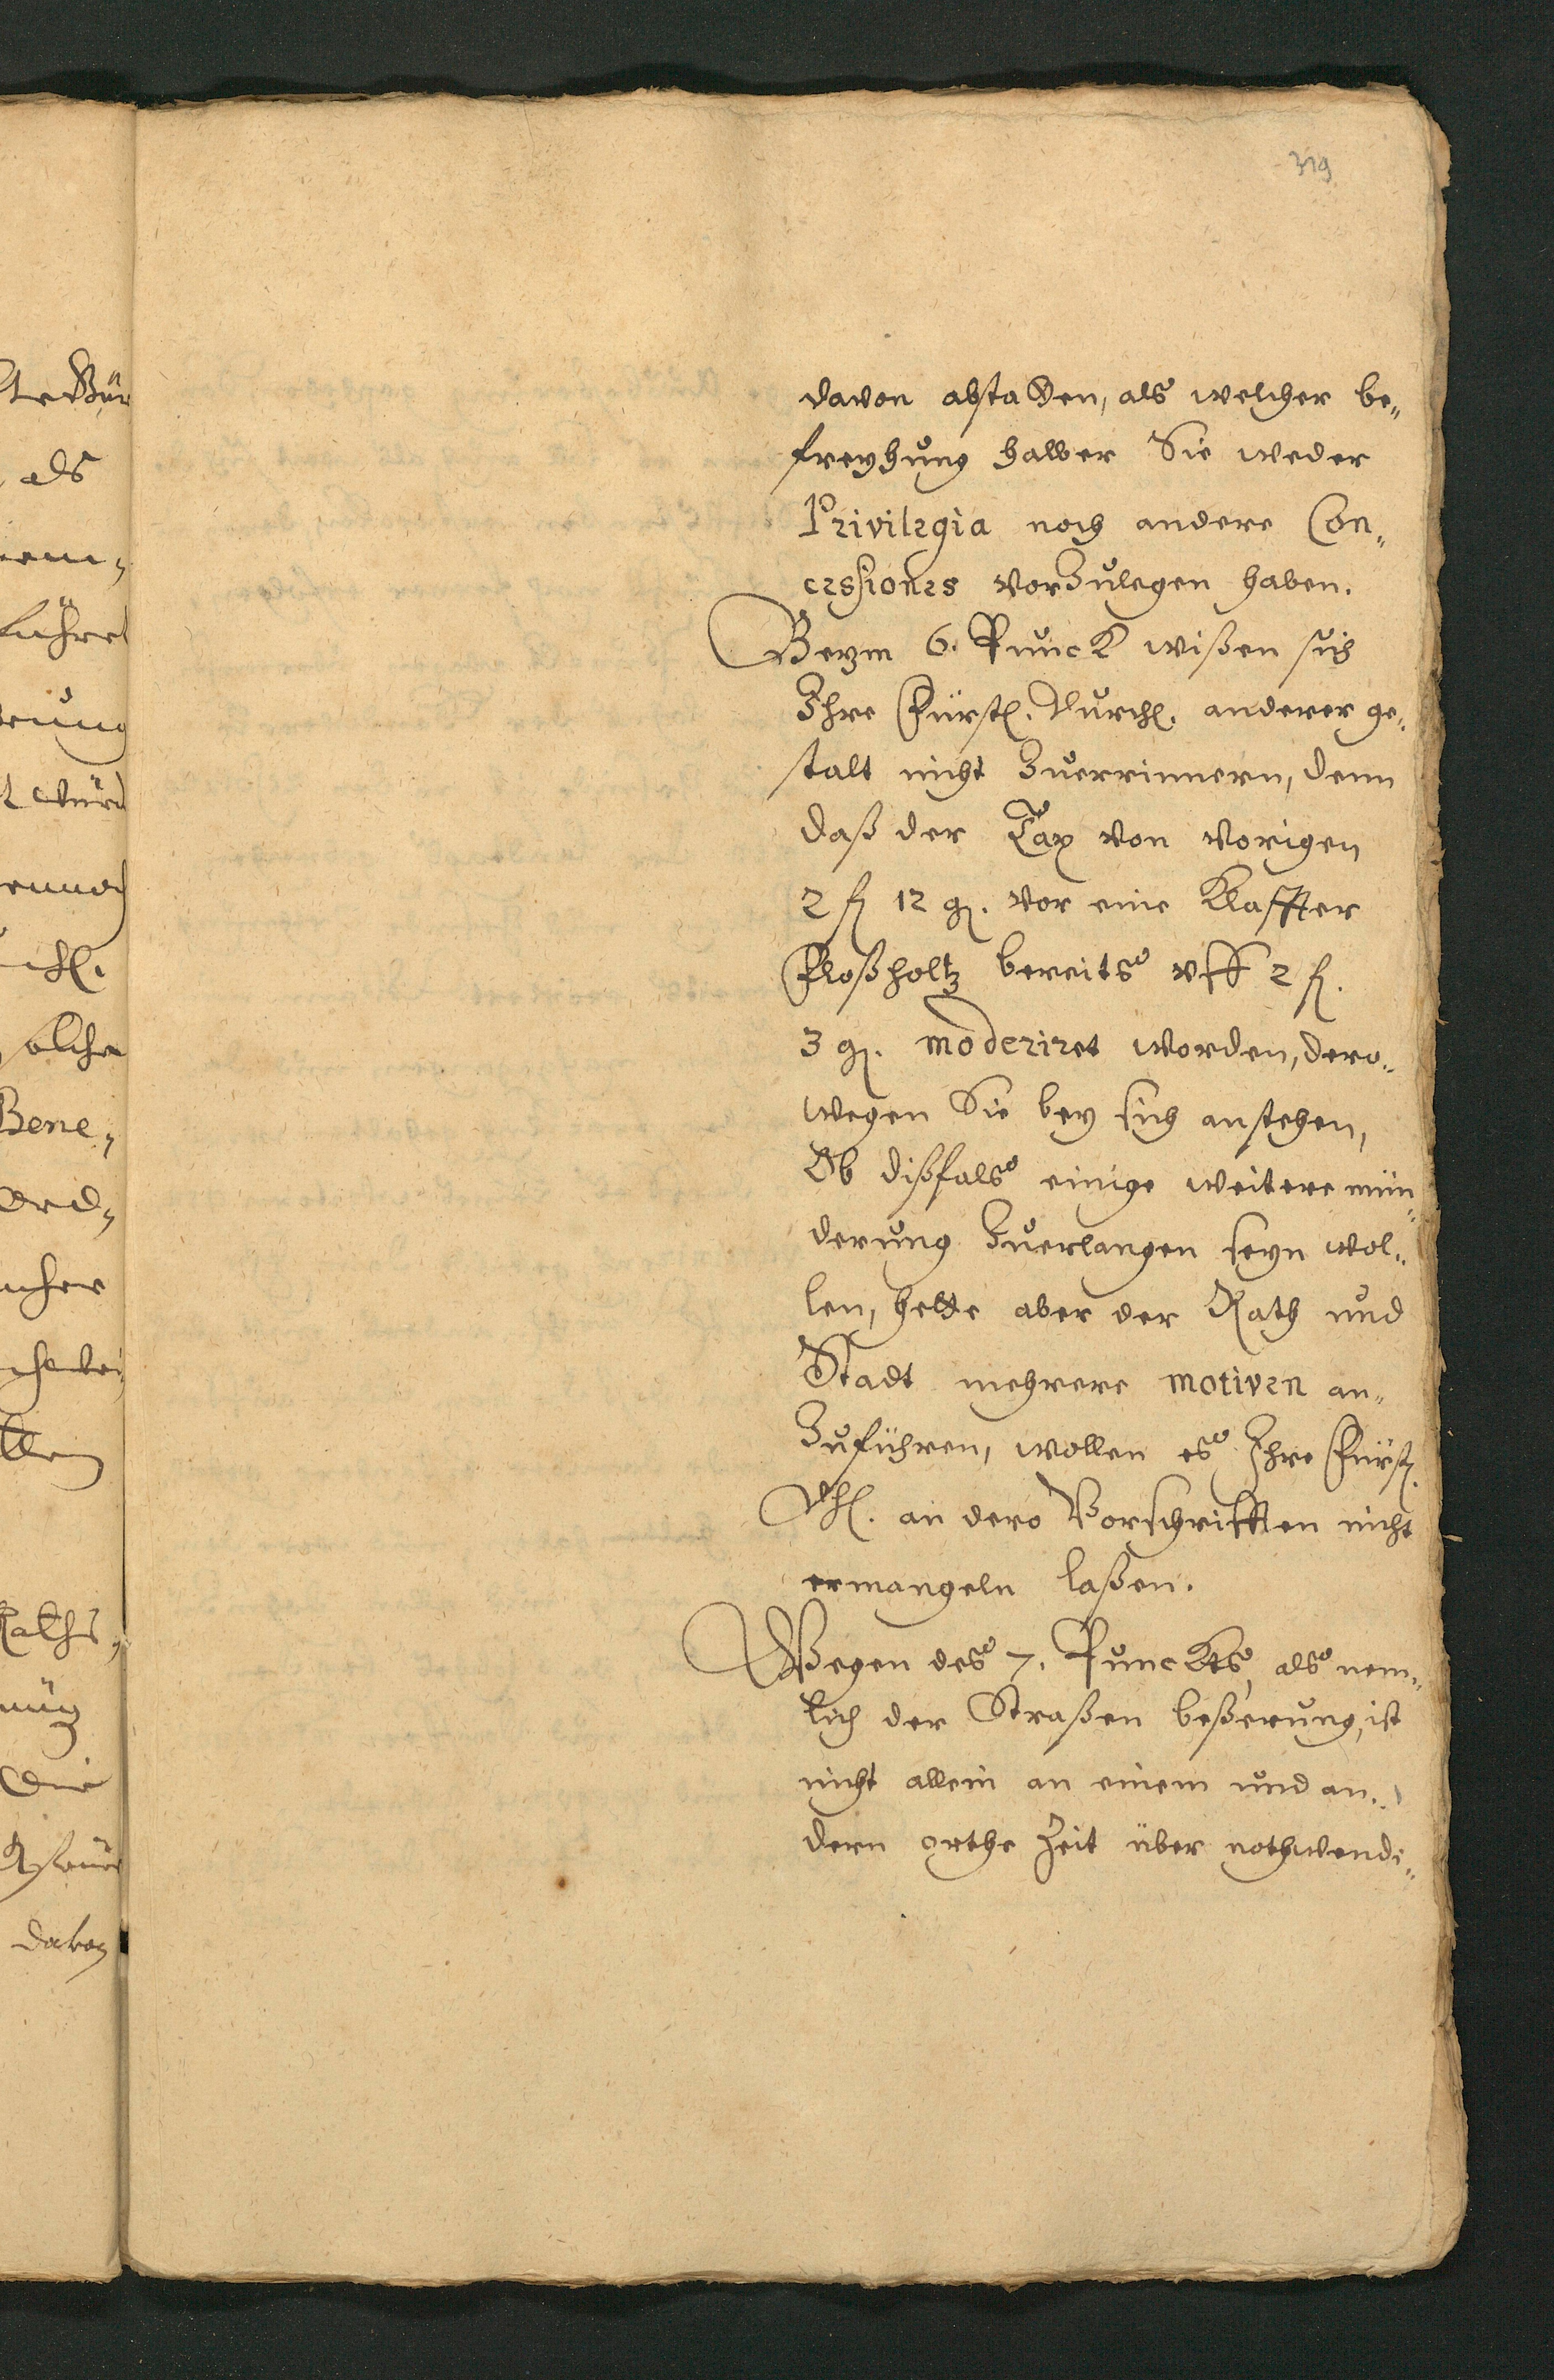 319
davon abstatten, als welcher be„
freyhung halber Sie weder
Privilegia noch andere Con„
cessiones vorzulegen haben.
Beym 6. Punckt wißen sich
Ihre Fürstl. Durchl. anderer ge„
stalt nicht zuerrinnern, denn
daß der Tax von vorigen
2 fl 12 gl. vor eine Klaffter
Floßholtz bereits vff 2 fl.
3 gl. moderiret worden, dero„
wegen Sie bey sich anstehen,
Ob dißfals einige weitere min„
derung zuerlangen seyn wol„
len, hette aber der Rath und
Stadt mehrere motiven an„
zuführen, wollen es Ihre Fürstl.
Dhl. an dero Vorschrifften nicht
ermangeln laßen.
Wegen des 7. Punckts, als nem„
lich der Straßen beßerung, ist
nicht allein an einem und an„
dern orthe Zeit über nothwendi„